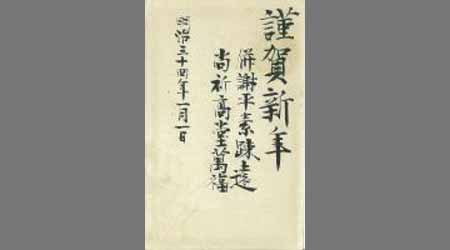 謹賀新年
併謝平素疎遠
尚祈高堂萬福
明治三十四年一月一日